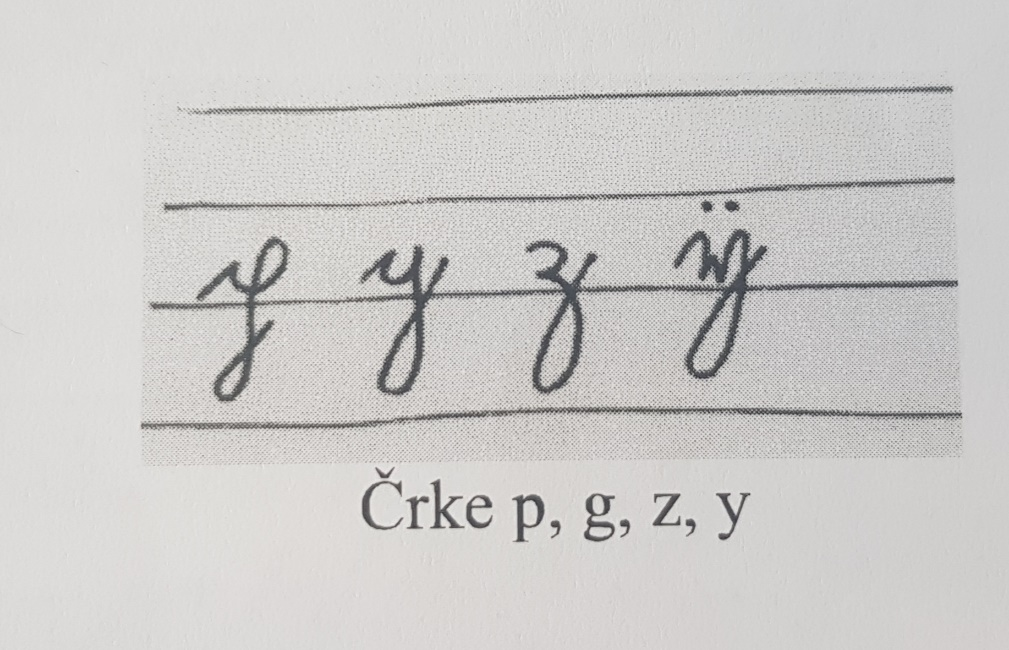 p g z ÿ
Črke p, g, z, y